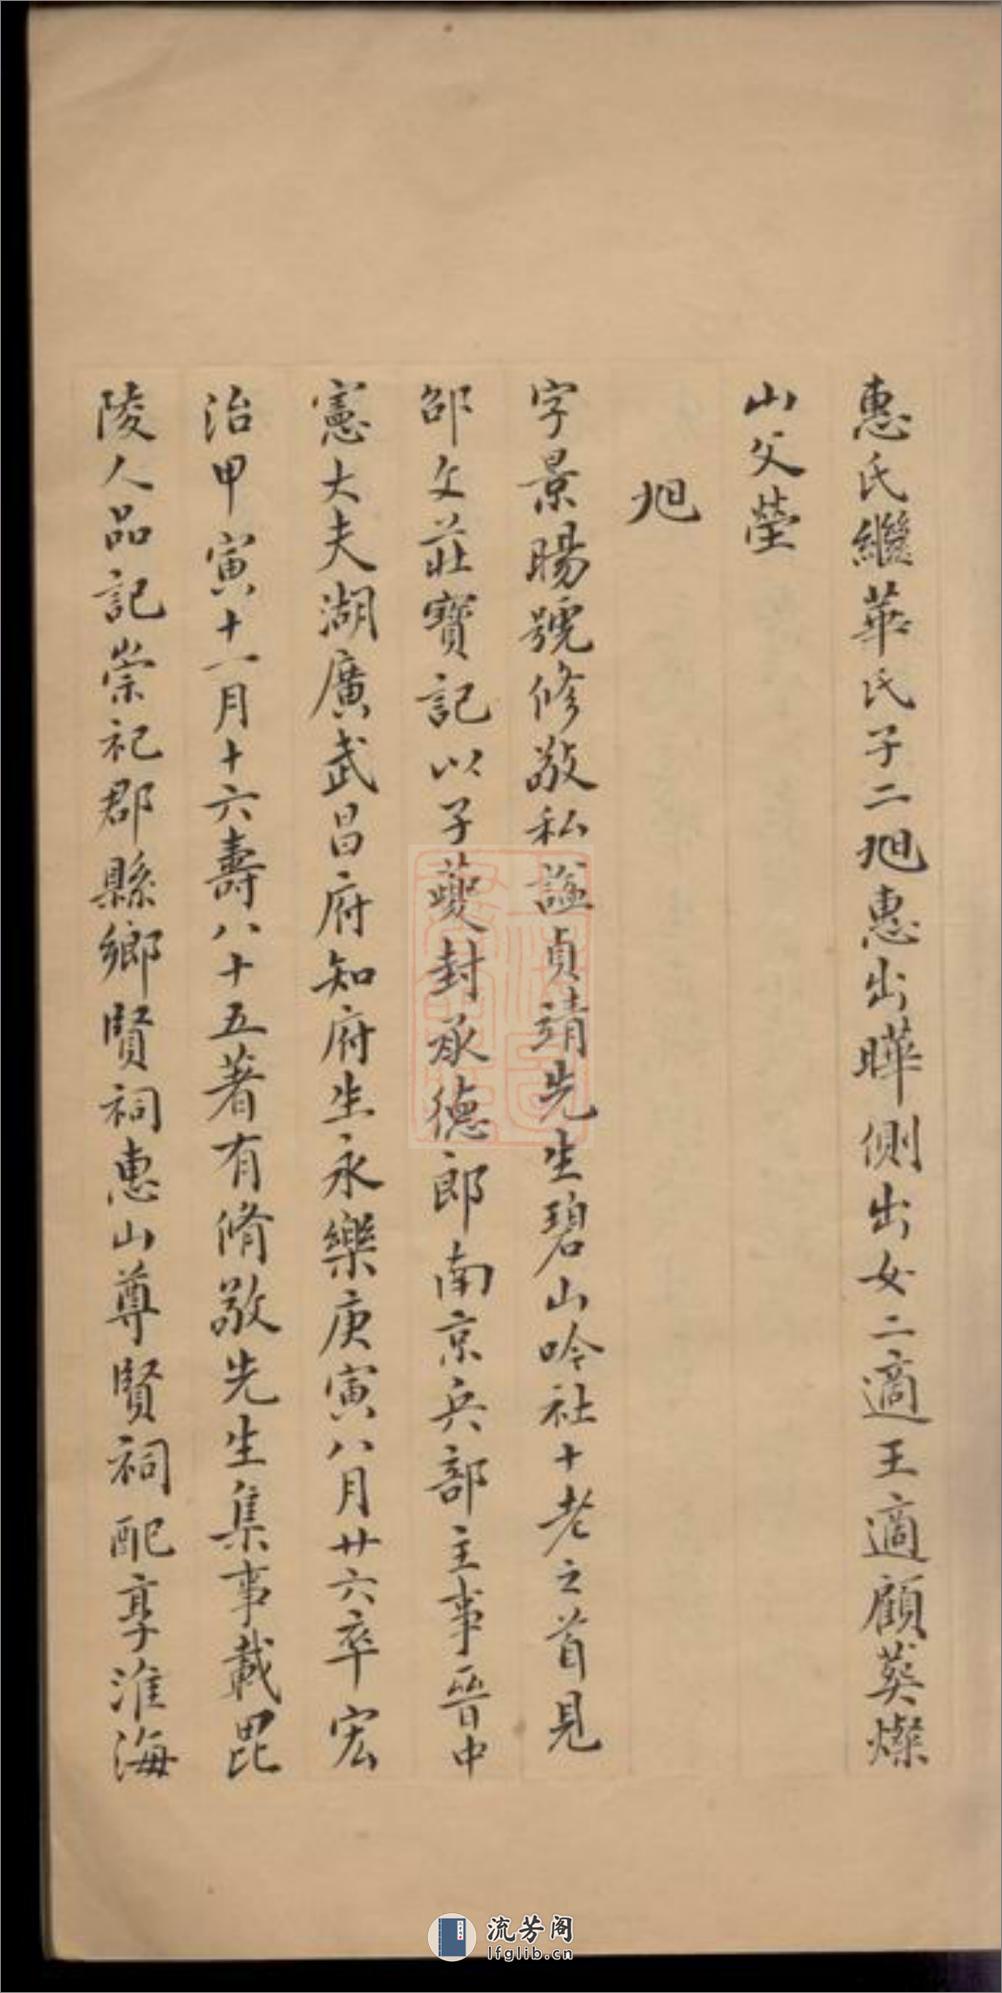 惠氏繼華氏子二旭惠出曄側出女二適王適顧葵燦
山父塋
旭
字景暘號修敬私諡貞靖先生碧山吟社十老之首見
邵文莊寶記以子夔封承德郎南京兵部主事晉中
憲大夫湖廣武昌府知府生永樂庚寅八月廿六卒宏
治甲寅十一月十六壽八十五著有脩敬先生集事載毘
陵人品記崇祀郡縣鄉賢祠惠山尊賢祠配享淮海
流芳阁
lfglib.cn